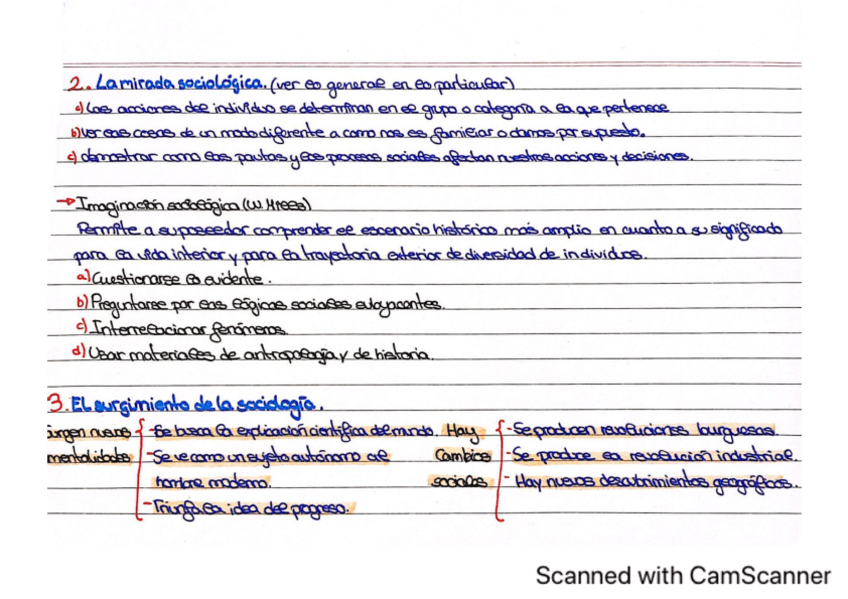 2. La mirada sociológica. (ver lo general en lo particular)
a) Las acciones del individuo se determinan en el grupo o categoría a la que pertenece
b) Ver las cosas de un modo diferente a como nos es familiar o damos por supuesto.
c) demostrar como las pautas y los procesos sociales afectan nuestras acciones y decisiones.
→ Imaginación sociológica (W. Mills)
Permite a su poseedor comprender el escenario histórico más amplio en cuanto a su significado
para la vida interior y para la trayectoria exterior de diversidad de individuos.
a) Cuestionarse lo evidente.
b) Preguntarse por las lógicas sociales subyacentes.
c) Interrelacionar fenómenos.
d) Usar materiales de antropología y de historia.
3. El surgimiento de la sociología.
surgen nuevas mentalidades
- Se busca la explicación científica del mundo.
- Se ve como un sujeto autónomo al hombre moderno.
- Triunfa la idea del progreso.
Hay Cambios sociales
- Se producen revoluciones burguesas.
- Se produce la revolución industrial.
- Hay nuevos descubrimientos geográficos.
Scanned with CamScanner